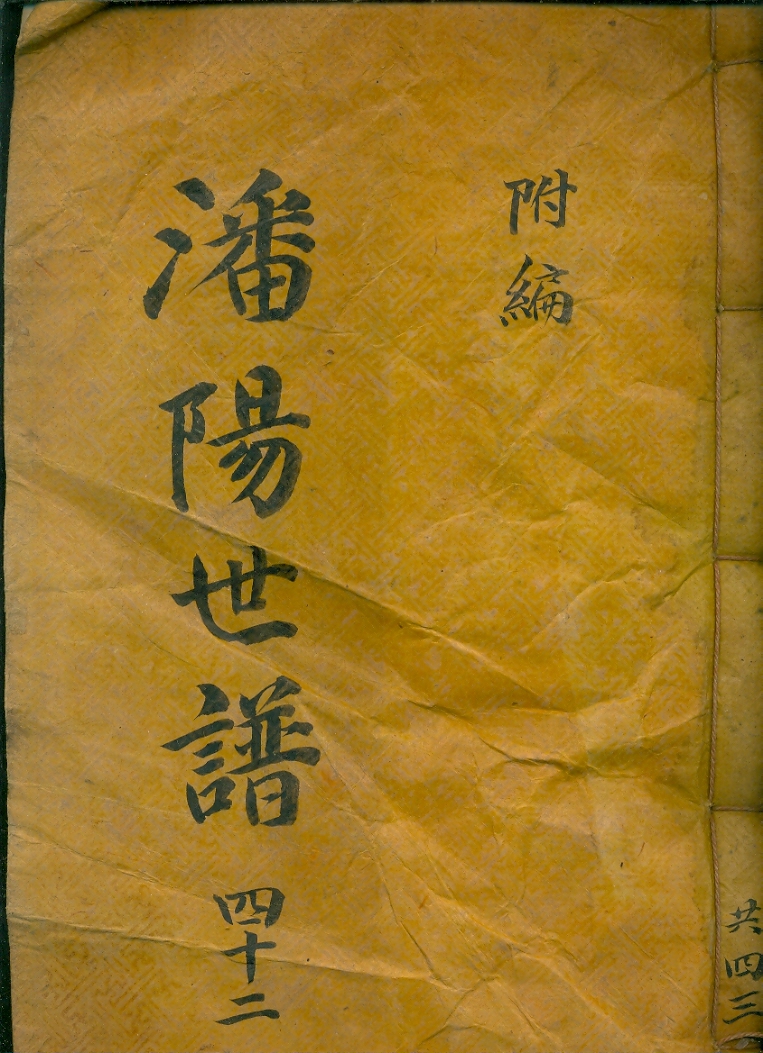 共四三
附編
潘陽世譜 四十二